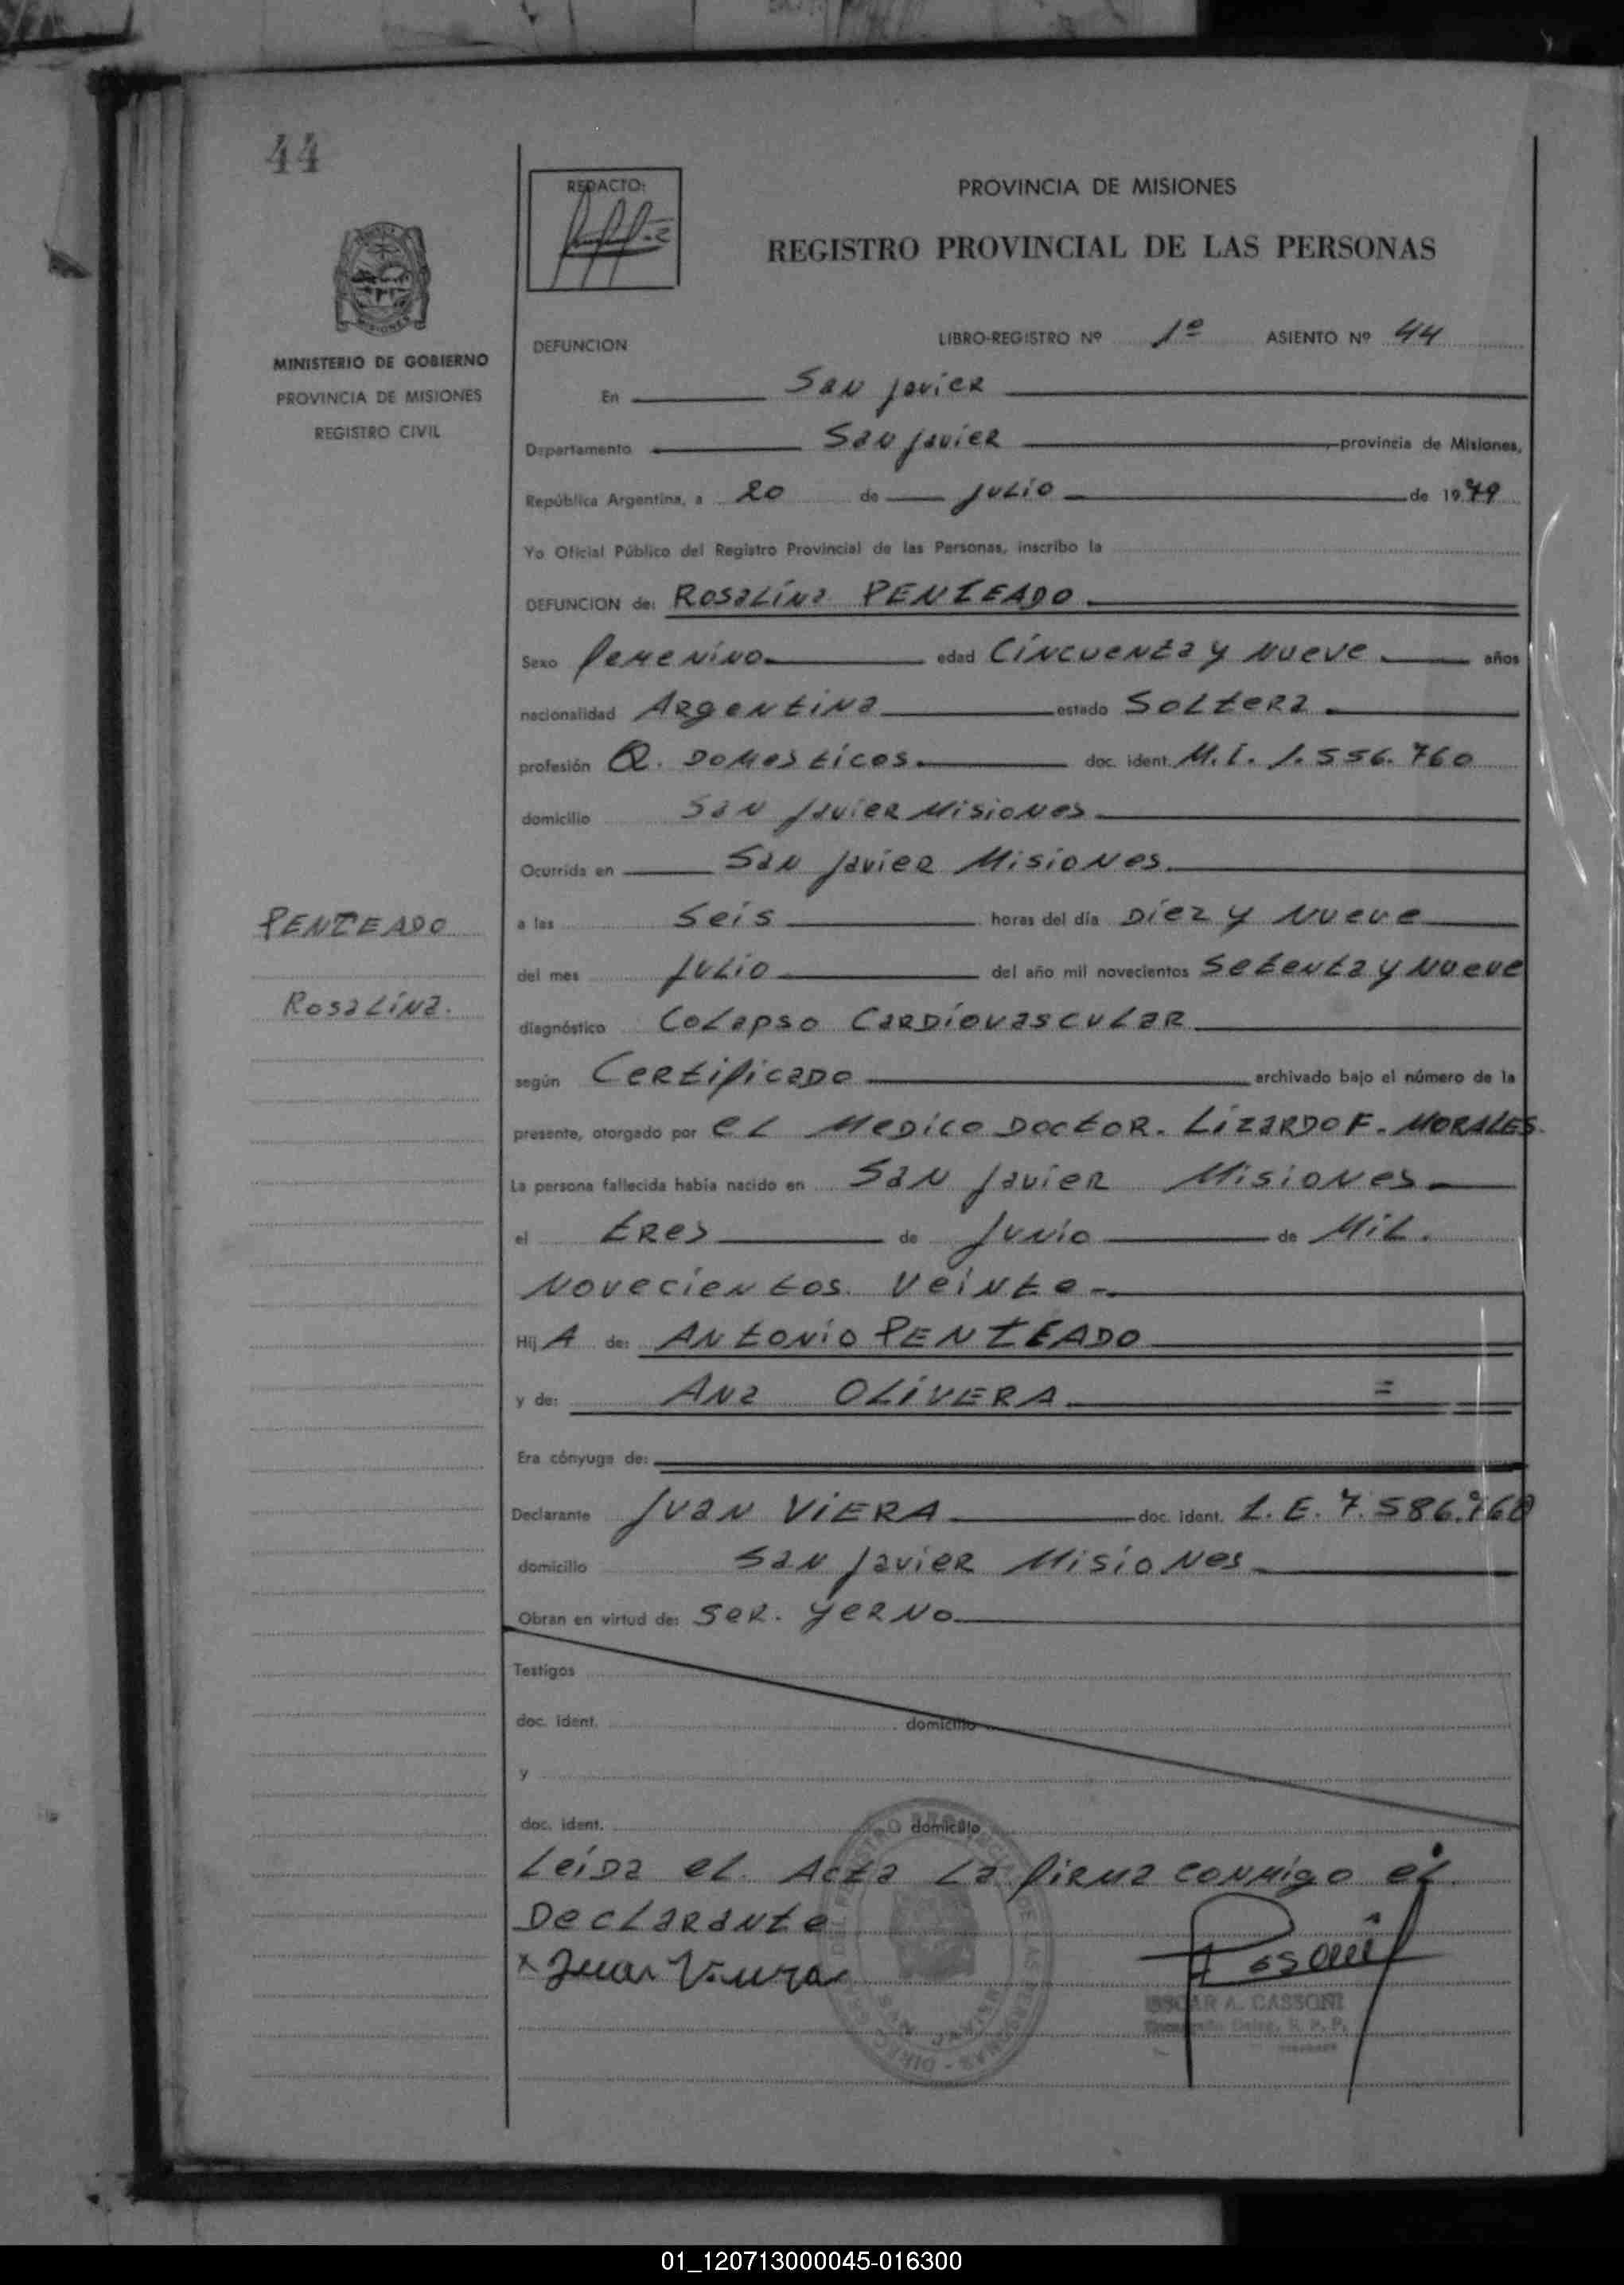 44
REDACTO:
PROVINCIA DE MISIONES
REGISTRO PROVINCIAL DE LAS PERSONAS
MISIONES
MINISTERIO DE GOBIERNO
PROVINCIA DE MISIONES
REGISTRO CIVIL
DEFUNCION LIBRO-REGISTRO Nº 1º ASIENTO Nº 44
En San Javier
Departamento San Javier provincia de Misiones,
República Argentina, a 20 de Julio de 1979
Yo Oficial Público del Registro Provincial de las Personas, inscribo la
DEFUNCION de: Rosalina PENTEADO
Sexo femenino edad Cincuenta y nueve años
nacionalidad Argentina estado Soltera
profesión Q. Domesticos doc. ident. M.I. 1.556.760
domicilio San Javier Misiones
Ocurrida en San Javier Misiones
PENTEADO
Rosalina.
a las Seis horas del día Diez y nueve
del mes Julio del año mil novecientos Setenta y nueve
diagnóstico Colapso Cardiovascular
según Certificado archivado bajo el número de la
presente, otorgado por el Medico Doctor. Lizardo F. MORALES
La persona fallecida había nacido en San Javier Misiones
el tres de Junio de Mil.
Novecientos Veinte
Hij A de: ANTONIO PENTEADO
y de: Ana OLIVERA =
Era cónyuge de:
Declarante Juan VIERA doc. ident. L.E. 7.586.768
domicilio San Javier Misiones
Obran en virtud de: Ser. yerno
Testigos
doc. ident. domicilio
y
doc. ident. domicilio
Leida el Acta La firma conmigo el
Declarante
x Juan Viera
OSCAR A. CASSONI
01_120713000045-016300